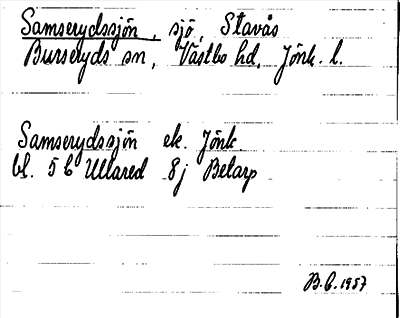 Samserydssjön, sjö, Stavås
Burseryds sn, Västbo hd, Jönk. l.
Samserydssjön ek. Jönk.
bl. 5 C Ullared 8j Betarp
B.G. 1957